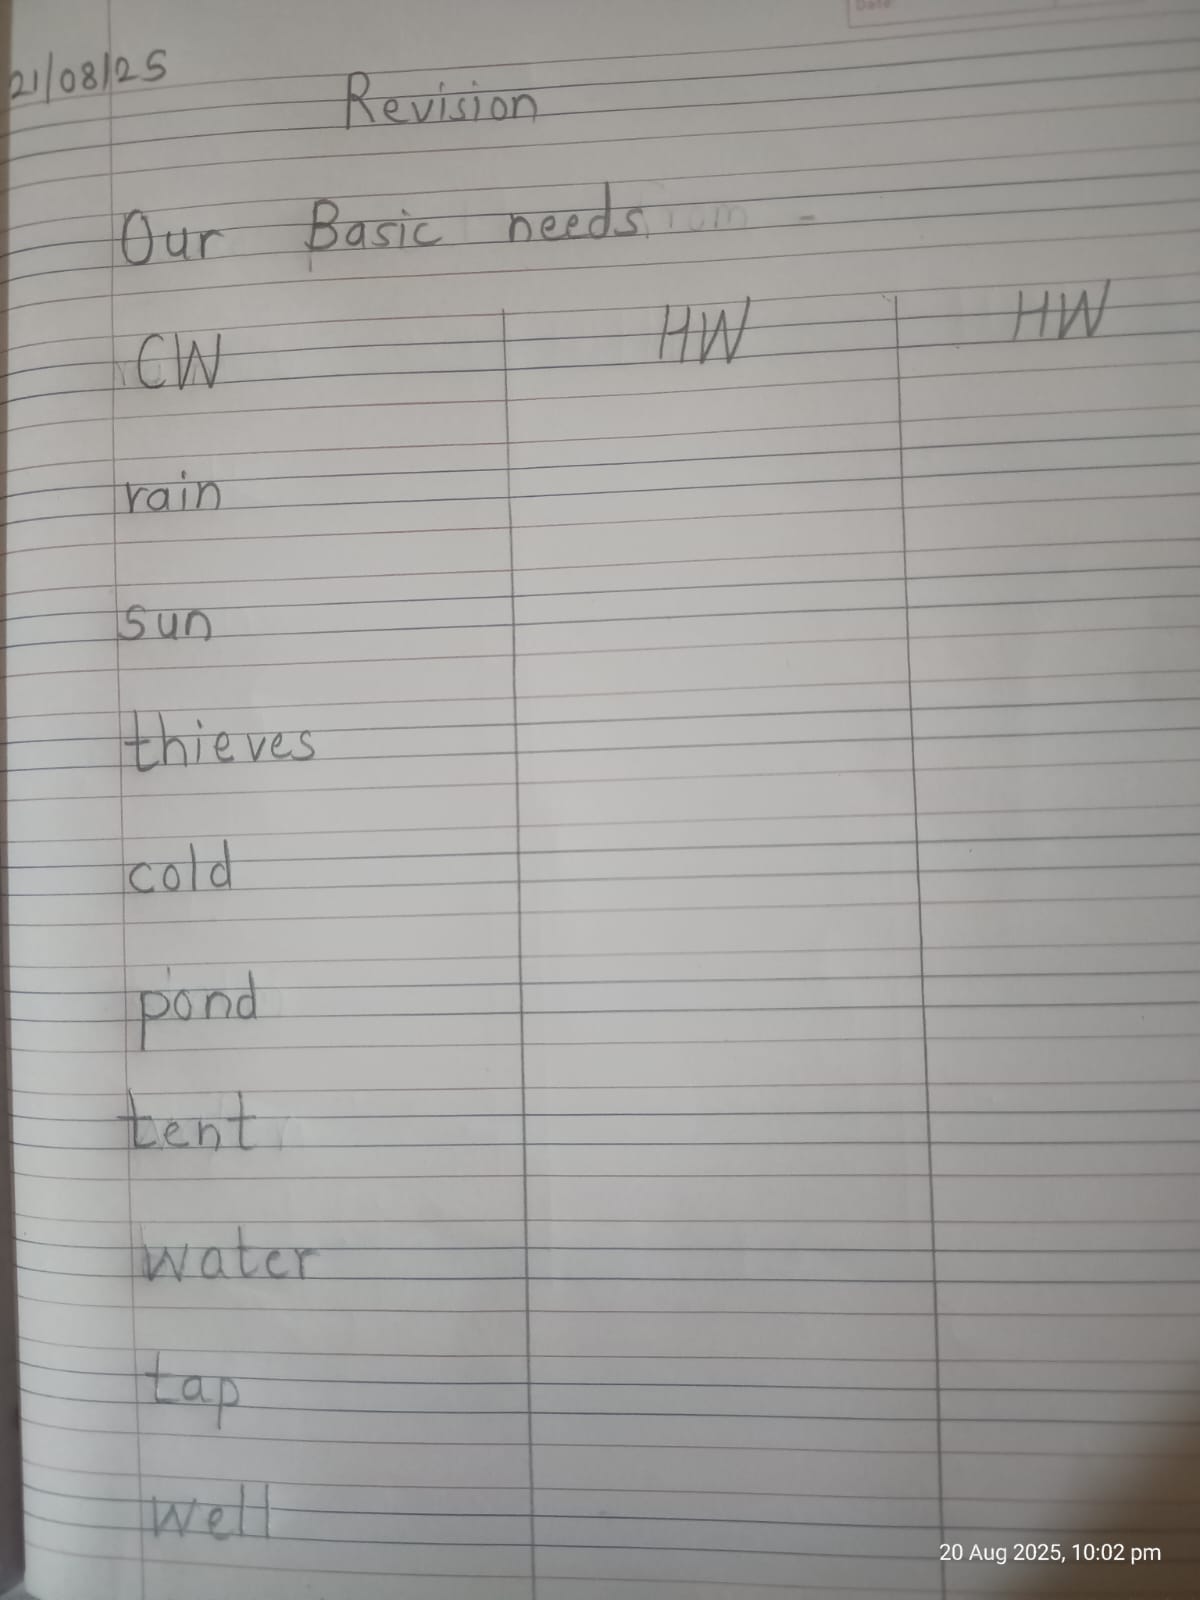 Date
21/08/25
Revision
Our Basic needs
CW HW HW
rain
sun
thieves
cold
pond
tent
water
tap
well
20 Aug 2025, 10:02 pm